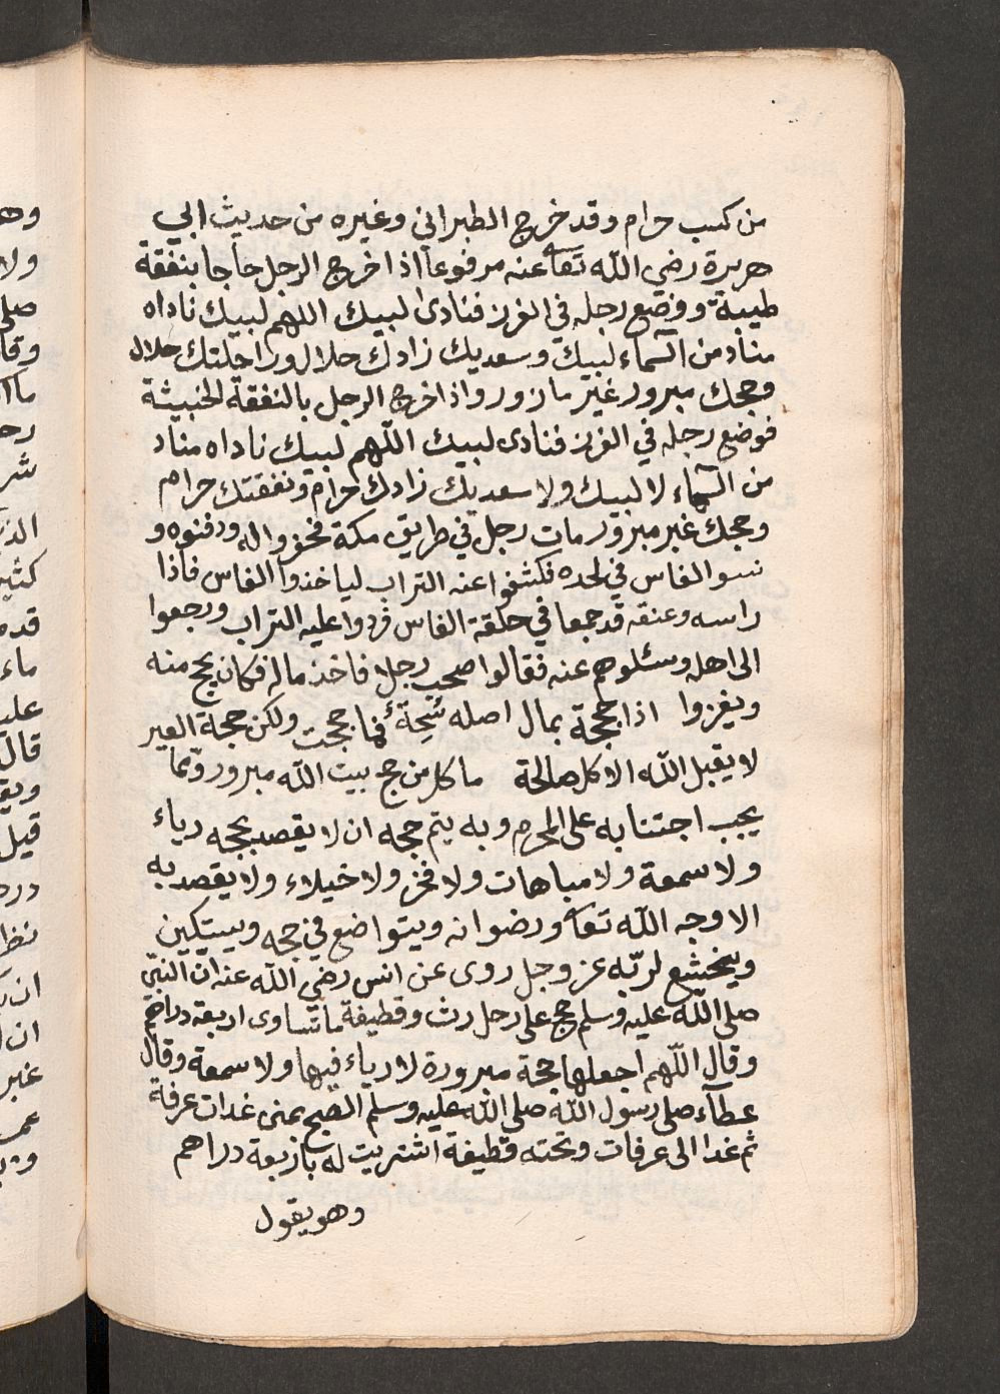 من كسب حرام وقد خرج الطبراني وغيره من حديث ابي
هريرة رضي الله تعا عنه مرفوعا اذا خرج الرجل حاجا بنفقة
طيبة ووضع رجله في الغرز فنادى لبيك اللهم لبيك ناداه
مناد من السماء لبيك وسعديك زادك حلال وراحلتك حلال
وحجك مبرور غير مازور واذا خرج الرجل بالنفقة الخبيثة
فوضع رجله في الغرز فنادى لبيك اللهم لبيك ناداه مناد
من السماء لا لبيك ولا سعديك زادك حرام ونفقتك حرام
وحجك غير مبرور مات رجل في طريق مكة فحفروا له ودفنوه و
نسوا الفاس في لحده فكشفوا عنه التراب لياخذوا الفاس فاذا
راسه وعنقه قد جمعا في حلقة الفاس فردوا عليه التراب ورجعوا
الى اهله وسئلوهم عنه فقالوا صحب رجلا فاخذ ماله فكان يحج منه
ويغزوا اذا حججة بمال اصله سُحِةٌ فما حججت ولكن حجة العير
لا يقبل الله الا كل صالحة ما كل من حج بيت الله مبرور ومما
يجب اجتنابه على المحرم وبه يتم حجه ان لا يقصد بحجه رياء
ولا سمعة ولا مباهات ولا فخر ولا خيلاء ولا يقصد به
الا وجه الله تعا ورضوانه ويتواضع في حجه ويستكين
ويخشع لربه عز وجل روى عن انس رضي الله عنه ان النبي
صلى الله عليه وسلم حج على رحل رث وقطيفة ما تساوى اربعة دراهم
وقال اللهم اجعلها حجة مبرورة لا رياء فيها ولا سمعة وقال
عطاء صلى رسول الله صلى الله عليه وسلم الصبح بمنى غدات عرفة
ثم غدا الى عرفات وتحته قطيفة اشتريت له باربعة دراهم
وهو يقول